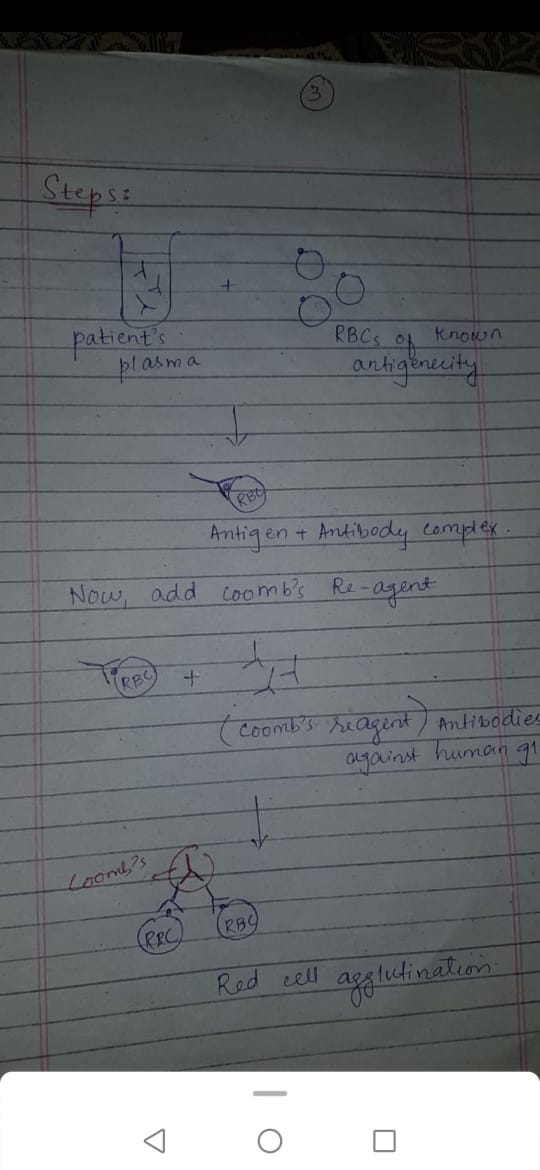 3
Steps:
+
patient's
plasma
RBCs of known
antigenecity
RBC
Antigen + Antibody complex.
Now, add coomb's Re-agent
RBC +
(coomb's reagent) Antibodies
against human gl
Coomb's
RBC RBC
Red cell agglutination.